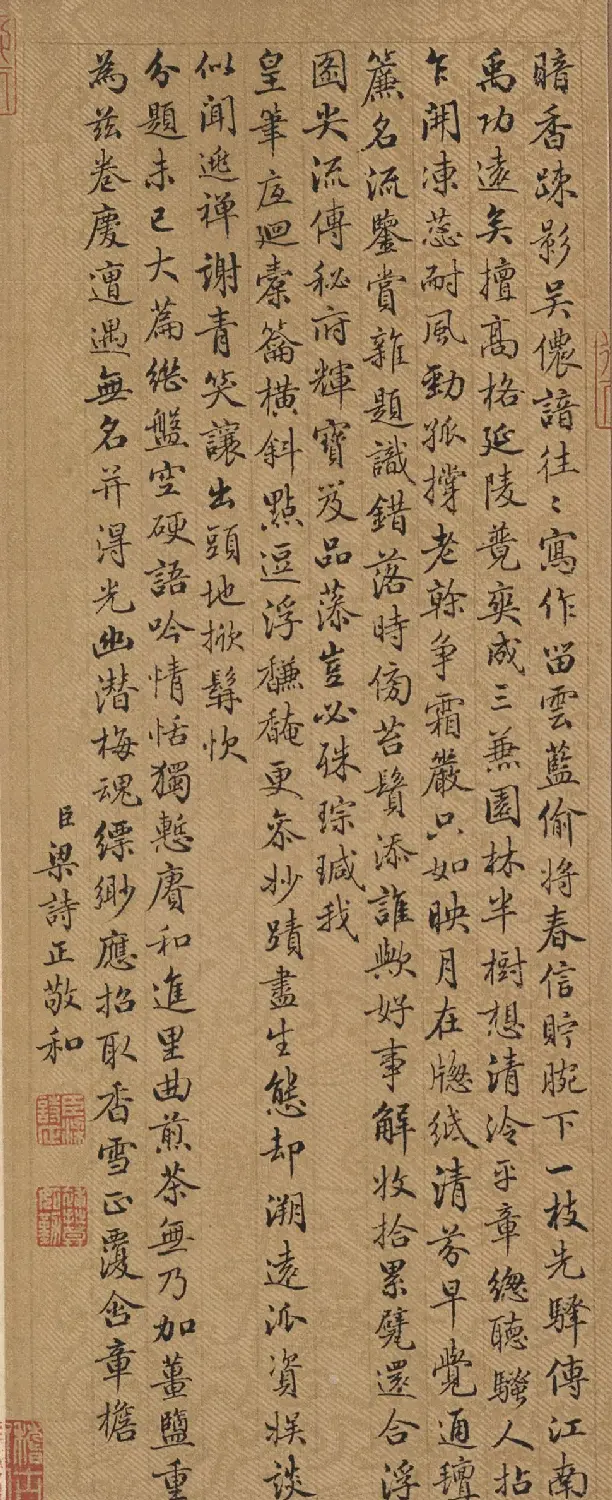 暗香疎影吳儂諳往〻寫作留雲藍偷將春信貯腕下一枝先驛傳江南
禹功遠矣擅高格延陵竟爽成三兼園林半樹想清泠平章總聽騷人拈
乍開凍蕊耐風勁孤撐老榦爭霜嚴只如映月在牕紙清芬早覺通璮
簾名流鑒賞雜題識錯落時傍苔鬢添誰歟好事解收拾累甓還合浮
圖尖流傳秘府輝寶笈品藻豈必硃琮瑊我
皇筆底廻橐籥橫斜點逗浮馦馣更參妙蹟盡生態却溯遠派資娛談
似聞逃禪謝青笑讓出頭地掀髯忺
分題未已大篇繼盤空硬語吟情恬獨慙賡和進里曲煎茶無乃加薑鹽重
為茲卷慶遭遇無名并得光幽潛梅魂縹緲應招取香雪正覆含章檐
臣梁詩正敬和